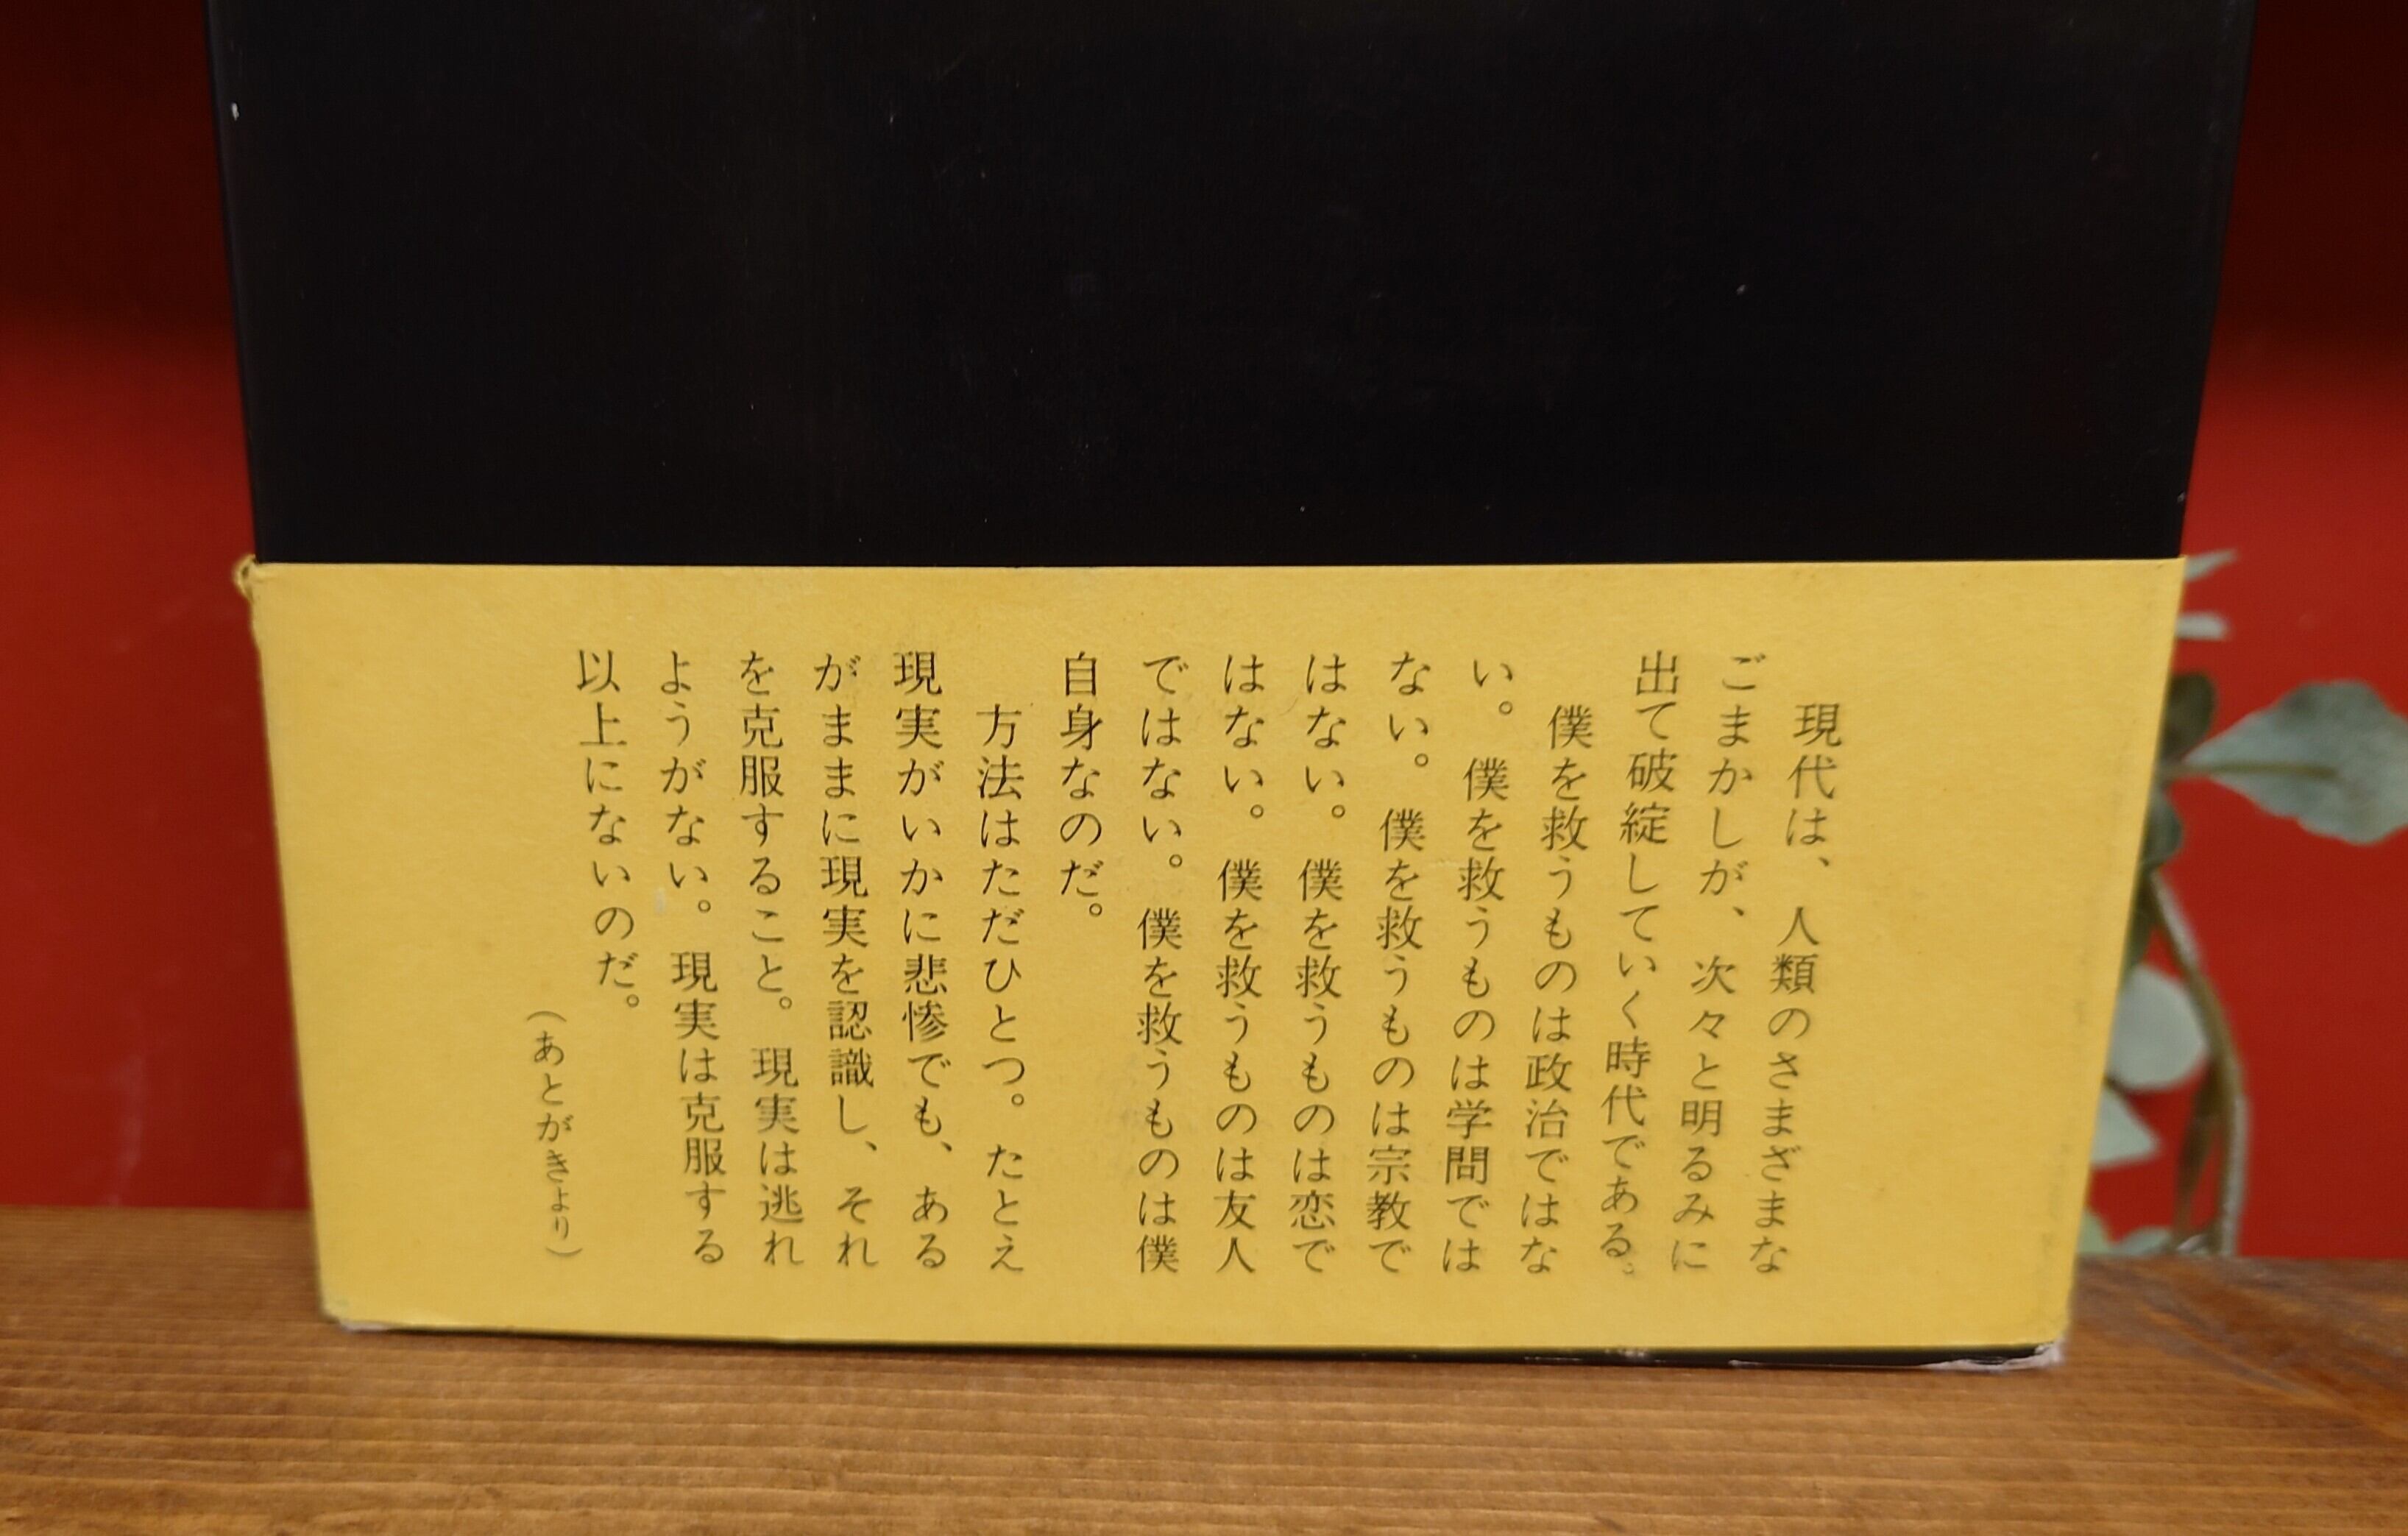 現代は、人類のさまざまな
ごまかしが、次々と明るみに
出て破綻していく時代である。
僕を救うものは政治ではな
い。僕を救うものは学問では
ない。僕を救うものは宗教で
はない。僕を救うものは恋で
はない。僕を救うものは友人
ではない。僕を救うものは僕
自身なのだ。
方法はただひとつ。たとえ
現実がいかに悲惨でも、ある
がままに現実を認識し、それ
を克服すること。現実は逃れ
ようがない。現実は克服する
以上にないのだ。
（あとがきより）